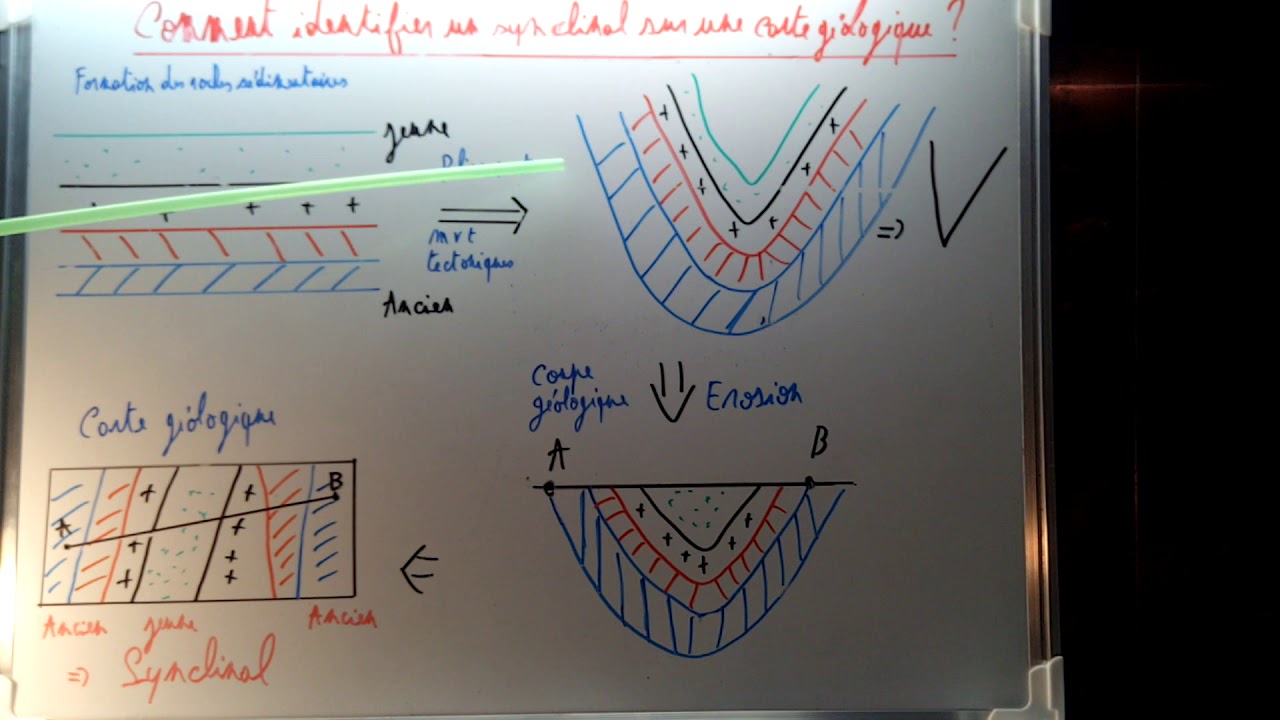 Comment identifier un synclinal sur une carte géologique ?
Formation des roches sédimentaires
jeune
mvt
tectoniques
Ancien
=> V
Coupe
géologique
Erosion
A B
Carte géologique
A B
Ancien jeune Ancien
=> Synclinal